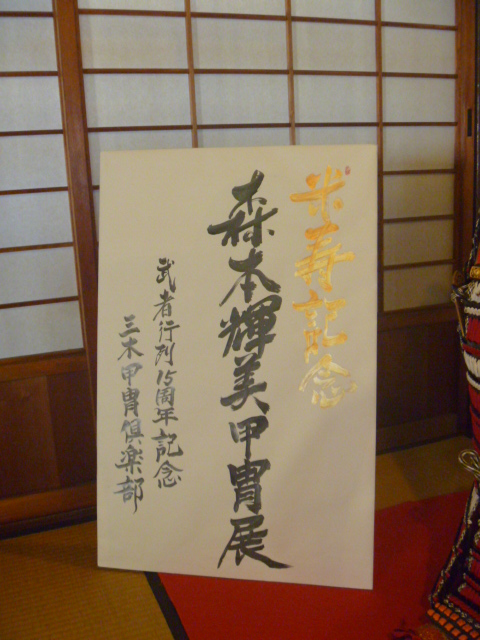 米寿記念
森本輝美甲冑展
武者行列15周年記念
三木甲冑倶楽部